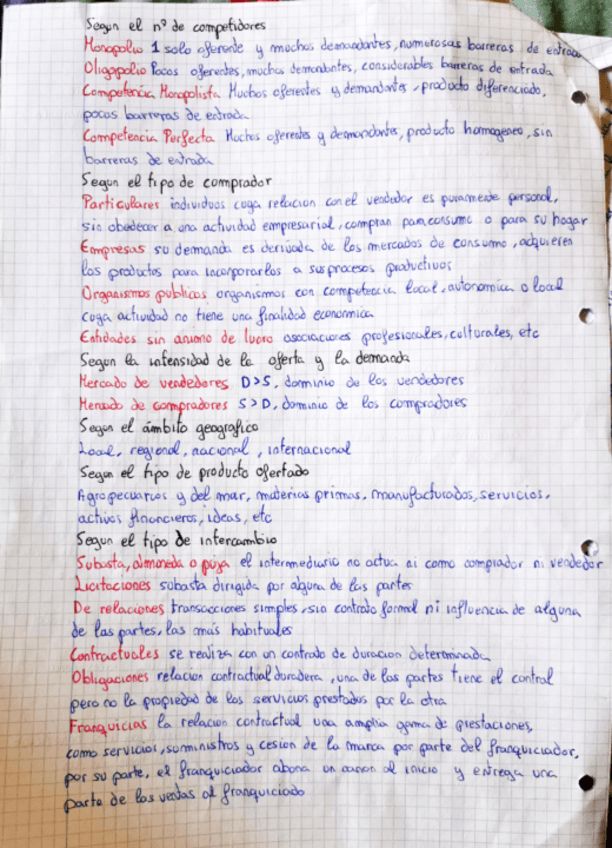 Segun el nº de competidores
Monopolio 1 solo oferente y muchos demandantes, numerosas barreras de entrada
Oligopolio Pocos oferentes, muchos demandantes, considerables barreras de entrada
Competencia Monopolista Muchos oferentes y demandantes, producto diferenciado,
pocas barreras de entrada
Competencia Perfecta Muchos oferentes y demandantes, producto homogeneo, sin
barreras de entrada
Segun el tipo de comprador
Particulares individuos cuya relacion con el vendedor es puramente personal,
sin obedecer a una actividad empresarial, compran para consumo o para su hogar
Empresas su demanda es derivada de los mercados de consumo, adquieren
los productos para incorporarlos a sus procesos productivos
Organismos publicos organismos con competencia local, autonomica o local
cuya actividad no tiene una finalidad economica
Entidades sin animo de lucro asociaciones profesionales, culturales, etc
Segun la intensidad de la oferta y la demanda
Mercado de vendedores D>S, dominio de los vendedores
Mercado de compradores S>D, dominio de los compradores
Segun el ámbito geografico
Local, regional, nacional, internacional
Segun el tipo de producto ofertado
Agropecuarios y del mar, materias primas, manufacturados, servicios,
activos financieros, ideas, etc
Segun el tipo de intercambio
Subasta, almoneda o puja el intermediario no actua ni como comprador ni vendedor
Licitaciones subasta dirigida por alguna de las partes
De relaciones transacciones simples, sin contrato formal ni influencia de alguna
de las partes, las más habituales
Contractuales se realiza con un contrato de duracion determinada
Obligaciones relacion contractual duradera, una de las partes tiene el control
pero no la propiedad de los servicios prestados por la otra
Franquicias la relacion contractual una amplia gama de prestaciones,
como servicios, suministros y cesion de la marca por parte del franquiciador,
por su parte, el franquiciador abona un canon al inicio y entrega una
parte de las ventas al franquiciado